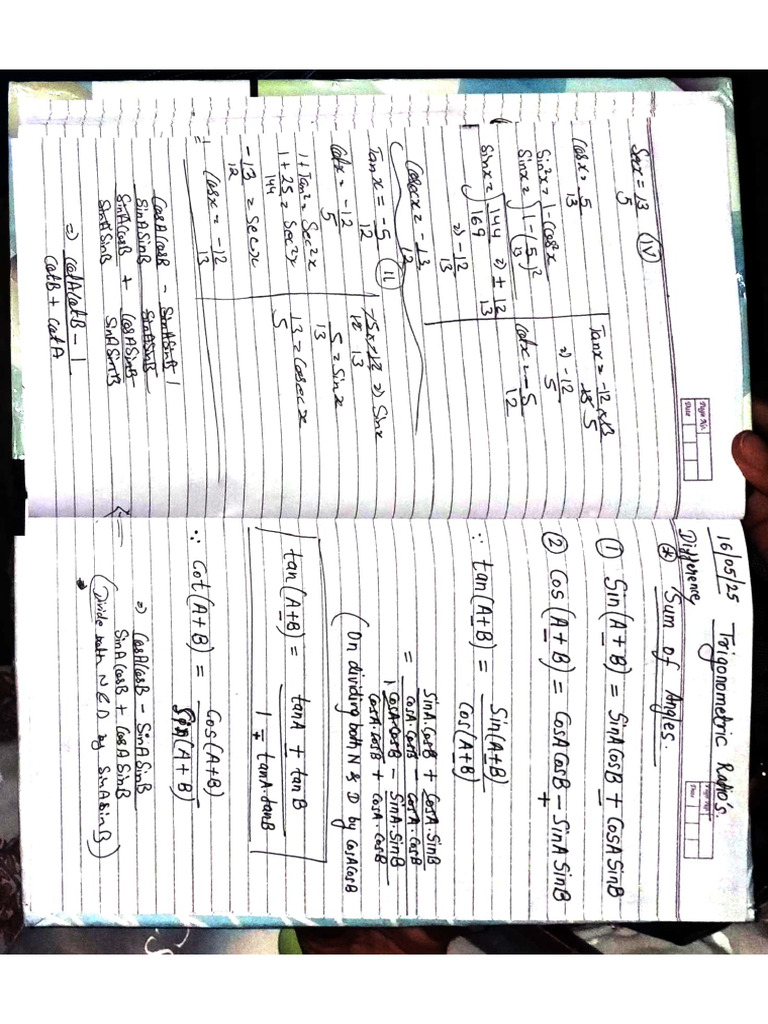 Page No.
Date
Sec x = 13/5 (IV)
Cos x = 5/13
Sin²x = 1 - cos²x
Sin x = √1 - (5/13)²
Sin x = √144/169 => ± 12/13
=> -12/13
Cosec x = -13/12
Tan x = -12/13 × 13/5
=> -12/5
Cot x = -5/12
Tan x = -5/12 (II)
Cot x = -12/5
1 + Tan² = Sec²x
1 + 25/144 = Sec²x
-13/12 = Sec x
Cos x = -12/13
=> Sin x
5/13 = Sin x
13/5 = Cosec x
CosA CosB/SinA SinB - SinA SinB/SinA SinB 1
SinA CosB/SinA SinB + CosA SinB/SinA SinB
=> CotA CotB - 1
CotB + CotA
16/05/25 Trigonometric Ratio's.
Page No.
Date
Difference,
* Sum of Angles.
① Sin(A ± B) = SinA CosB ± CosA SinB
② Cos(A ± B) = CosA CosB - SinA SinB
+
∵ tan(A ± B) = Sin(A ± B)
Cos(A ± B)
= SinA·CosB/CosA·CosB ± CosA·SinB/CosA·CosB
1 CosA·CosB/CosA·CosB ∓ SinA·SinB/CosA·CosB
(On dividing both N & D by CosA CosB
tan(A ± B) = tanA ± tanB
1 ∓ tanA·tanB
∵ Cot(A + B) = Cos(A + B)
Sin(A + B)
=> CosA CosB - SinA SinB
SinA CosB + CosA SinB
(Divide both N & D by SinA SinB)